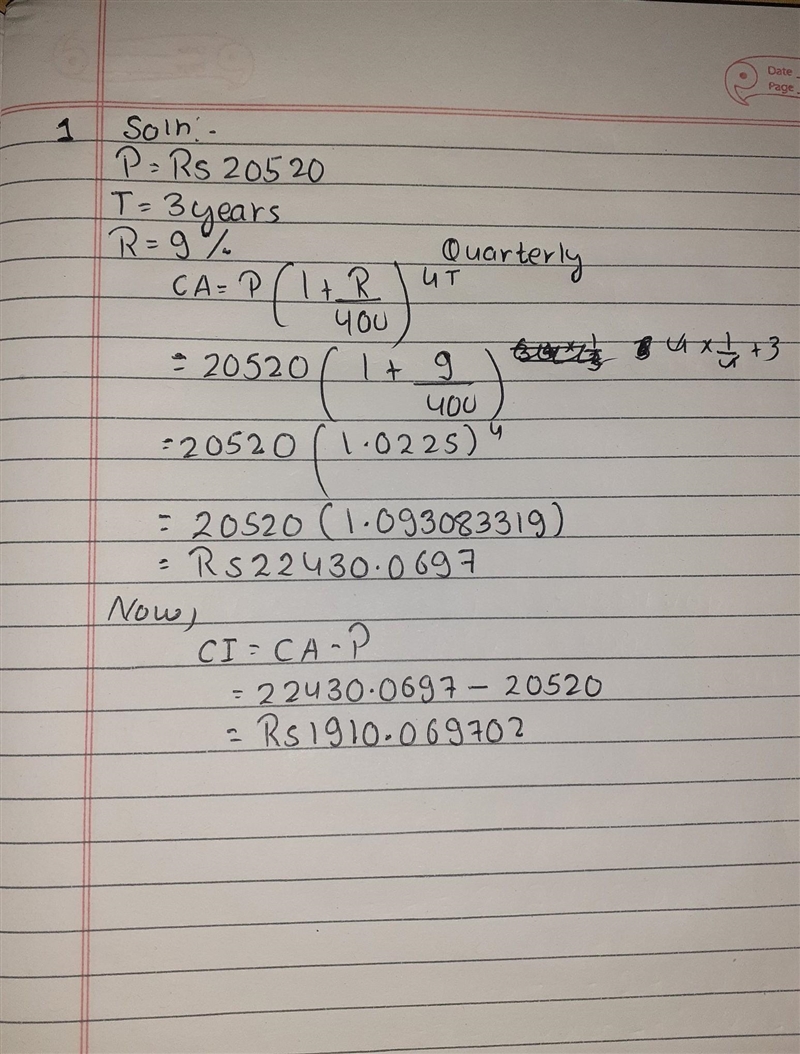 Date
Page
1 Soln:-
P = Rs 20520
T = 3 years
R = 9 %
Quarterly
CA = P ( 1 + R/400 )^4T
= 20520 ( 1 + 9/400 )^ 4 × 1/4 + 3
= 20520 ( 1.0225 )^4
= 20520 ( 1.093083319 )
= Rs 22430.0697
Now,
CI = CA - P
= 22430.0697 - 20520
= Rs 1910.069702